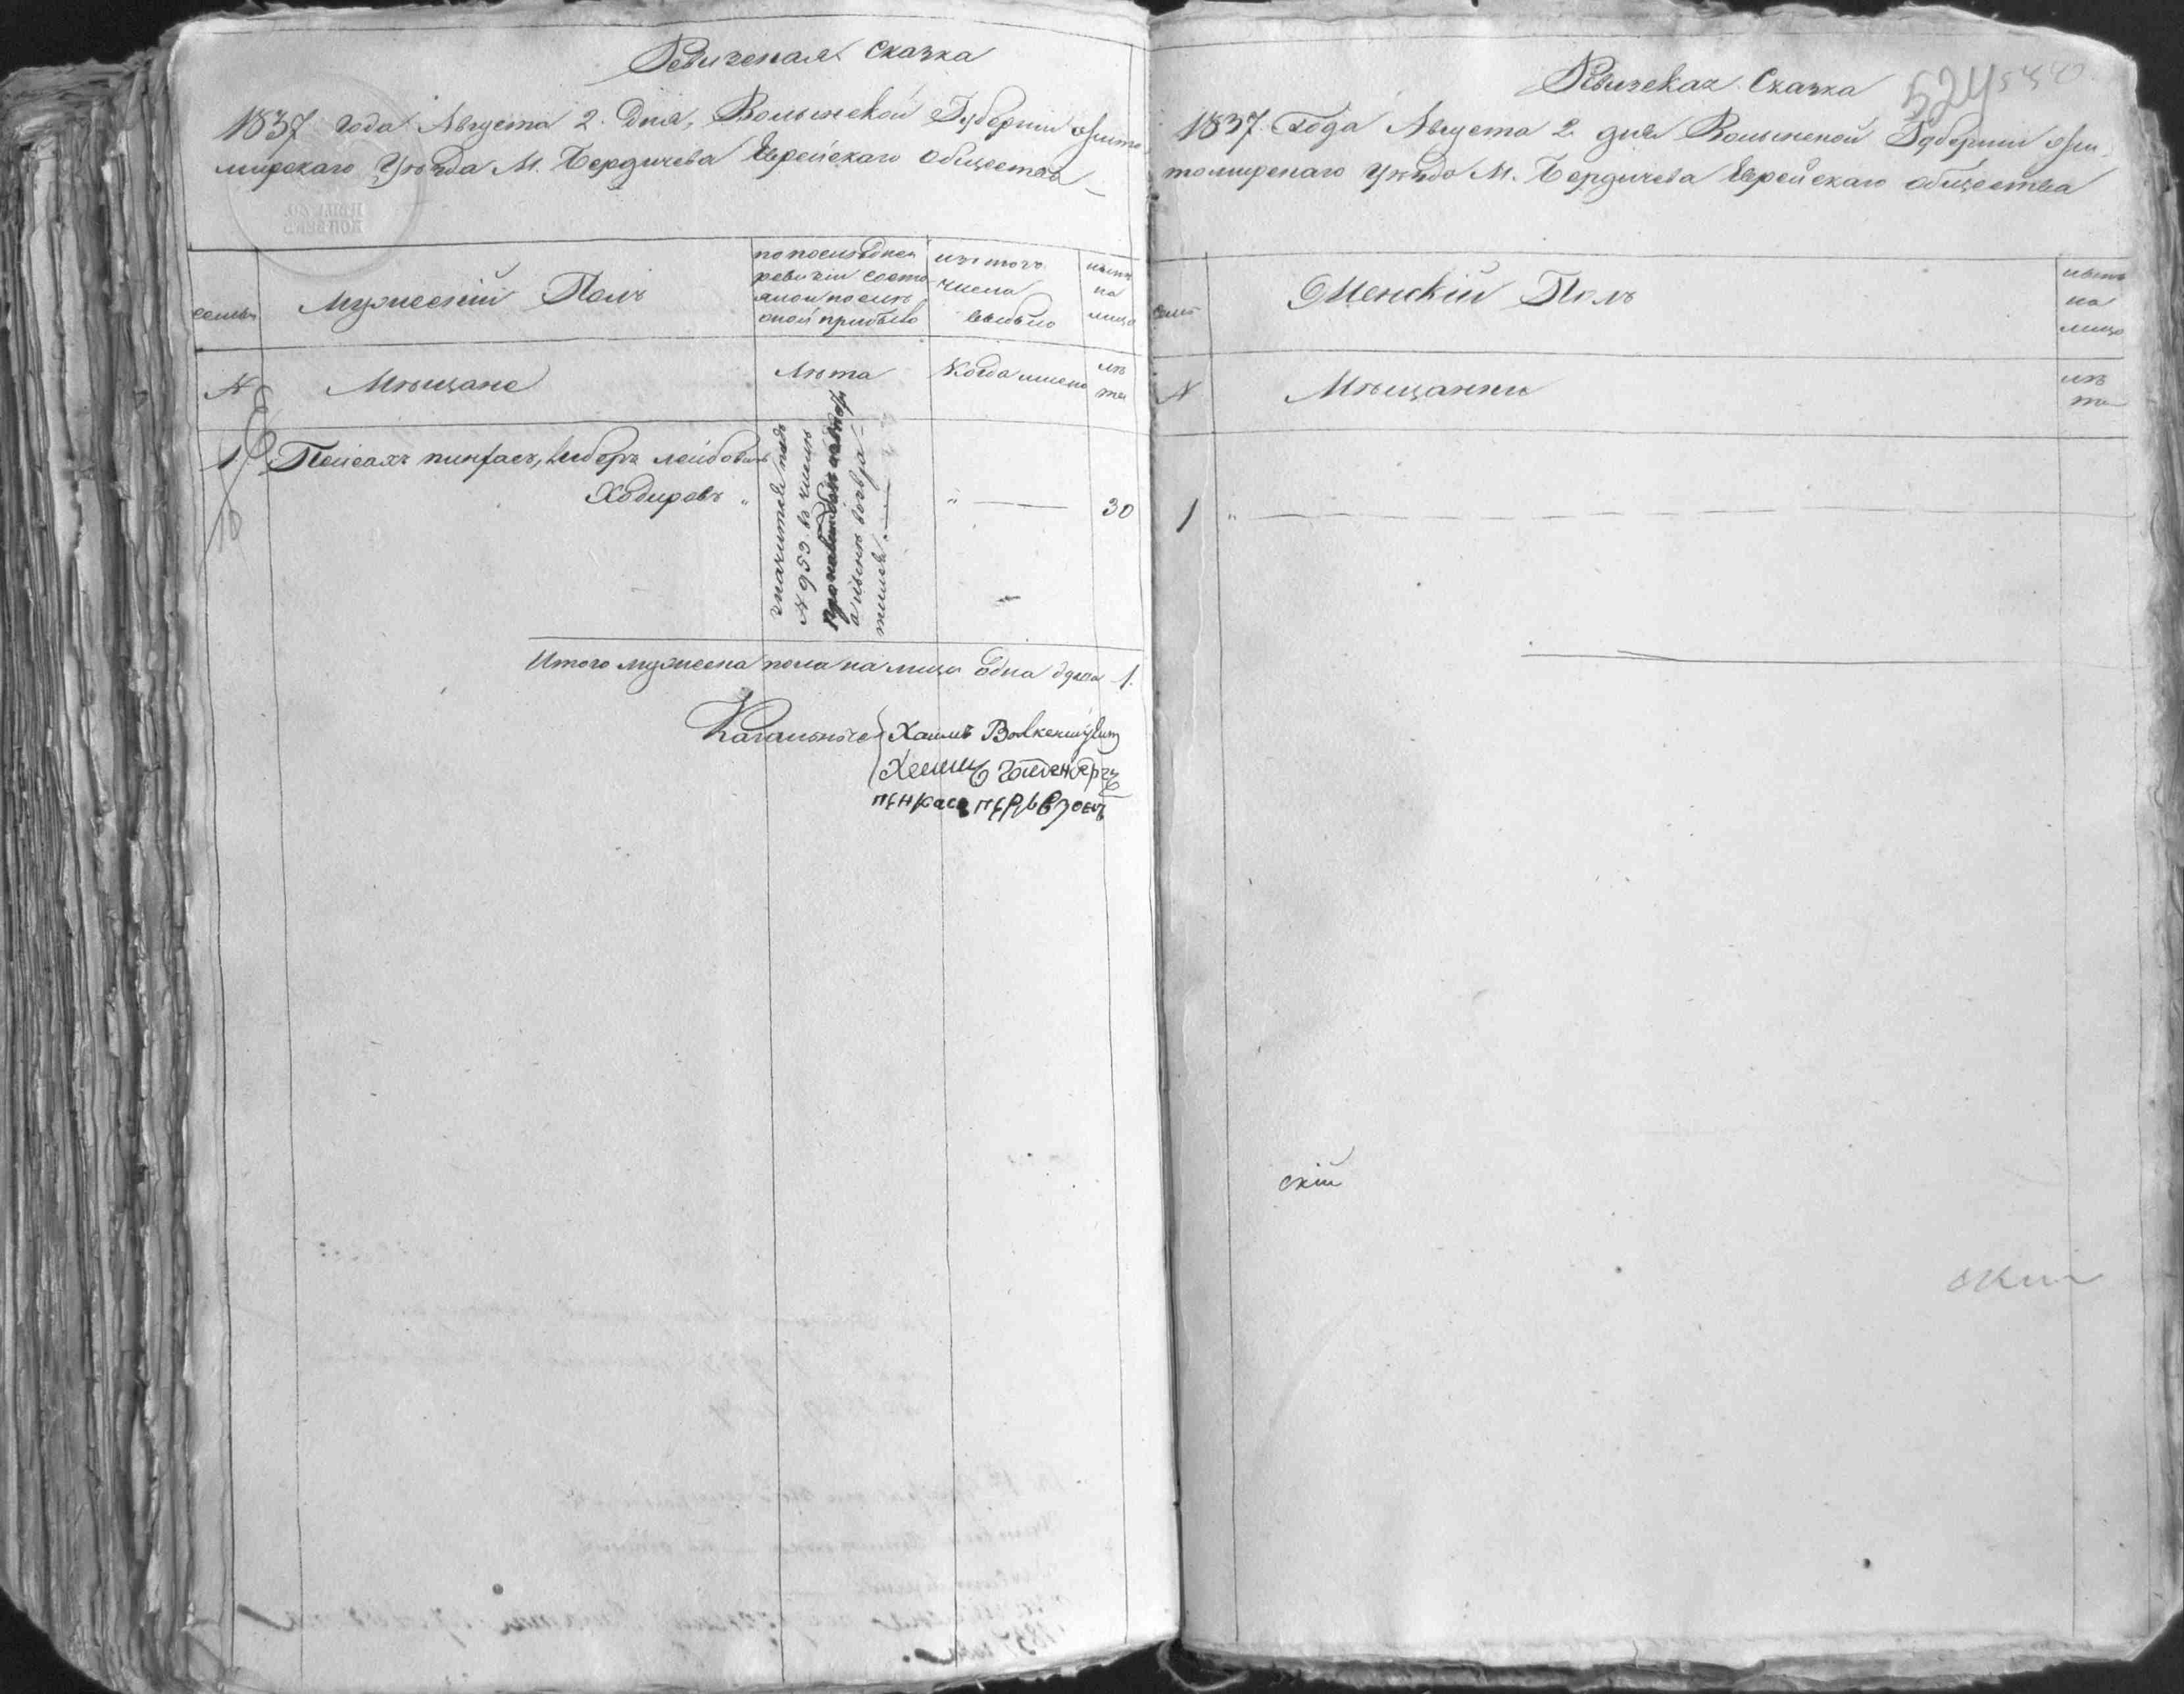 Ревизская Сказка
1837 года Августа 2 Дня, Волынской Губернии Жито
мирскаго Уѣзда М. Бердичева Еврейскаго Общества
семьи
Мужеский Полъ
по последней
ревизіи состо
яло и послѣ
оной прибыло
изъ того
числа
выбыло
нынѣ
на
лицо
№
Мѣщане
Лѣта
Когда именно
лѣ
та
1
Пейсахъ пинхасъ, Либеръ лейбовичъ
Ходировъ "
значится подъ
№ 953 въ числѣ
а нынѣ возвра-
тился
" —
30
Итого мужеска пола на лицо Одна душа 1.
Кагальные
Хаимъ
пенкасъ
Ревизская Сказка
524
1837 Года Августа 2 дня Волынской Губерніи Жи-
томирскаго Уѣзда М. Бердичева Еврейскаго общества
семьи
Женскій Полъ
нынѣ
на
лицо
№
Мѣщанки
лѣ
та
1 "
скій